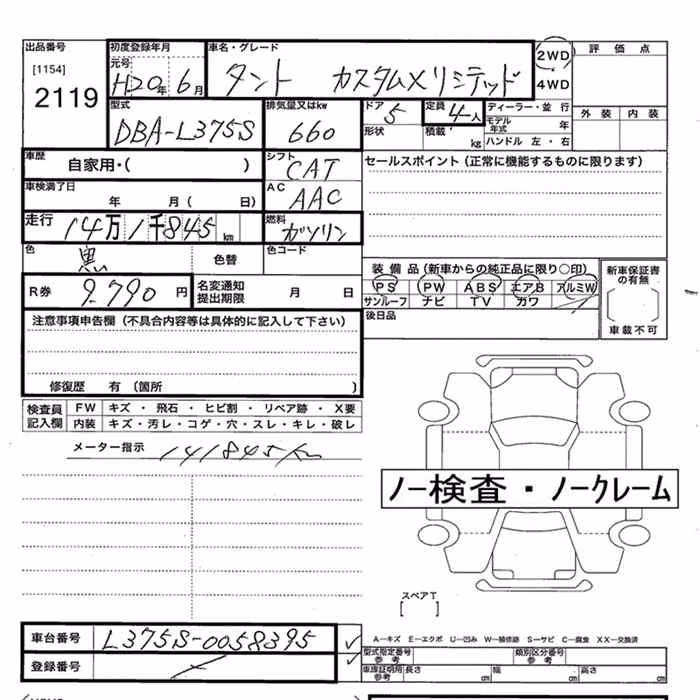 出品番号 初度登録年月 車名・グレード 2WD 評価点
[1154] 元号 4WD
2119 H20年6月 タント カスタムXリミテッド
型式 排気量又はkw ドア 5 定員 4人 ディーラー・並行 外装 内装
DBA-L375S 660 形状 積載 kg モデル年式 年
ハンドル 左・右
車歴 自家用・( ) シフト CAT セールスポイント (正常に機能するものに限ります)
車検満了日 年 月 ( 日) AC AAC
走行 14万1千845km 燃料 ガソリン
色 黒 色替 色コード
装備品 (新車からの純正品に限り〇印) 新車保証書の有無
R券 9,790円 名変通知提出期限 月 日 PS PW ABS エアB アルミW
サンルーフ ナビ TV カワ
注意事項申告欄 (不具合内容等は具体的に記入して下さい) 後日品 車載不可
修復歴 有 (箇所 )
検査員記入欄 FW キズ・飛石・ヒビ割・リペア跡・X要
内装 キズ・汚レ・コゲ・穴・スレ・キレ・破レ
メーター指示 141845km
ノー検査・ノークレーム
スペアT
[ ]
車台番号 L375S-0058395
A-キズ E-エクボ U-凹み W-補修跡 S-サビ C-腐食 XX-交換済
登録番号
型式指定番号 参考 類別区分番号 参考
車庫証明用参考 長さ cm 幅 cm 高さ cm